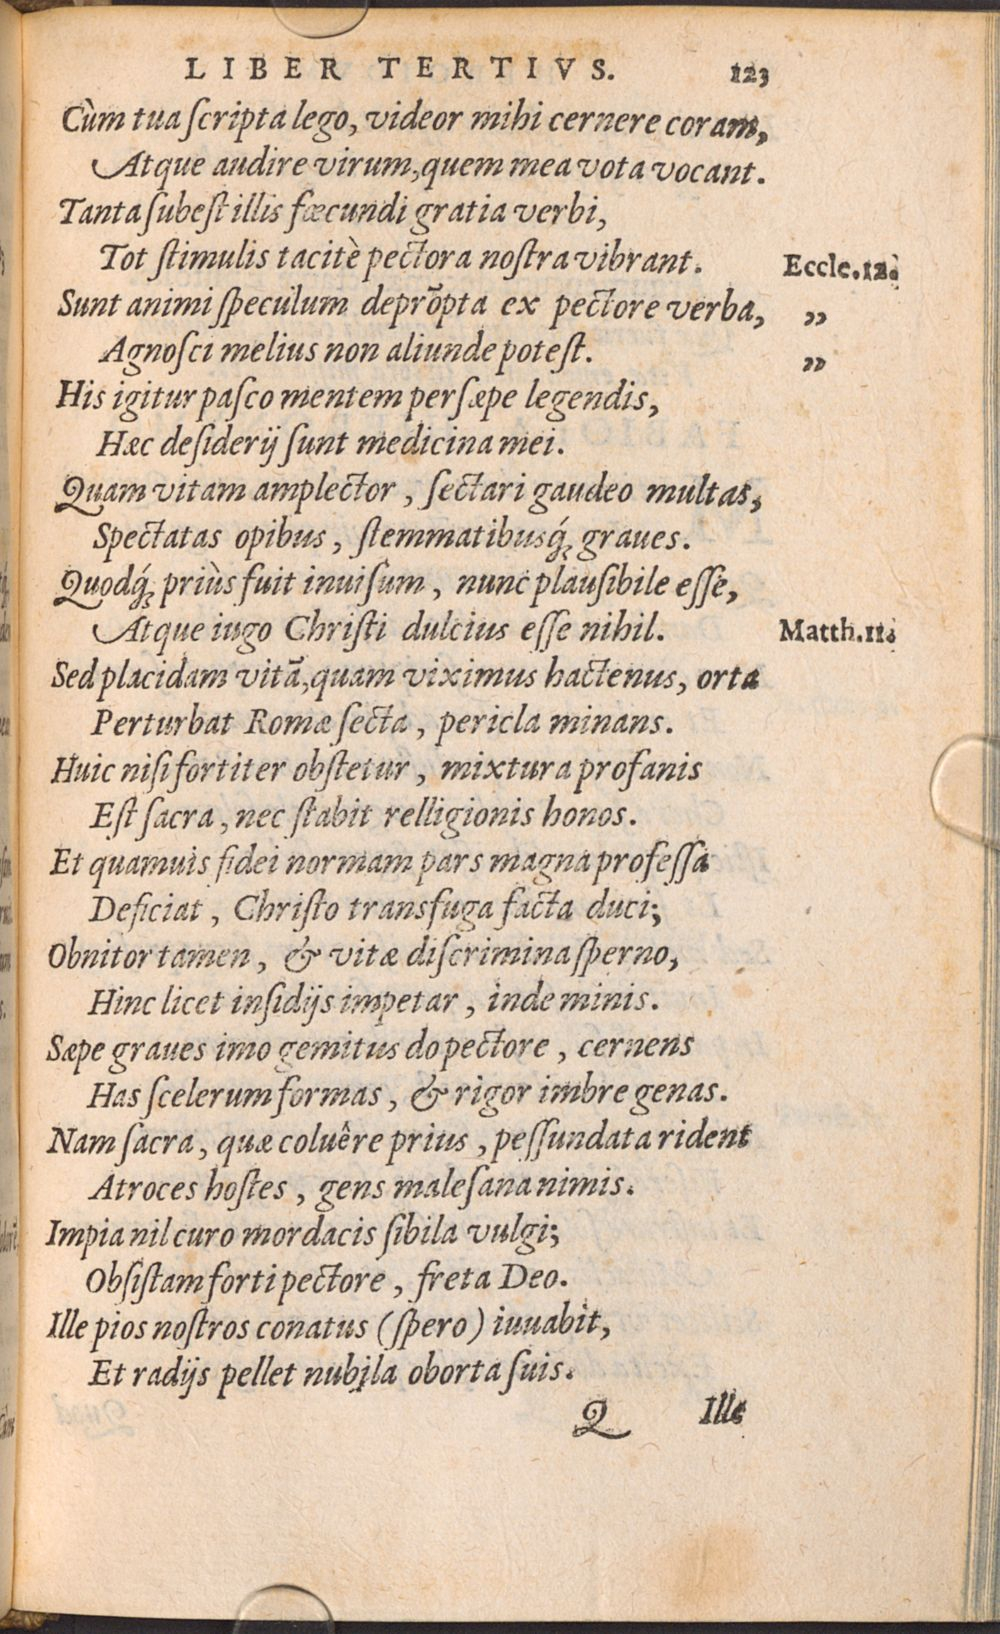 LIBER TERTIVS. 123
Cùm tua ſcripta lego, videor mihi cernere coram,
Atque audire virum, quem mea vota vocant.
Tanta ſubeſt illis fœcundi gratia verbi,
Tot ſtimulis tacitè pectora noſtra vibrant. Eccle. 12.
Sunt animi ſpeculum deprōpta ex pectore verba, „
Agnoſci melius non aliunde poteſt. „
His igitur paſco mentem perſæpe legendis,
Hæc deſiderij ſunt medicina mei.
Quam vitam amplector, ſectari gaudeo multas,
Spectatas opibus, ſtemmatibusq́ꝫ graues.
Quodq́ꝫ priùs fuit inuiſum, nunc plauſibile eſſe,
Atque iugo Chriſti dulcius eſſe nihil. Matth. 11.
Sed placidam vitā, quam viximus hactenus, orta
Perturbat Romæ ſecta, pericla minans.
Huic niſi fortiter obſtetur, mixtura profanis
Eſt ſacra, nec ſtabit relligionis honos.
Et quamuis fidei normam pars magna profeſſa
Deficiat, Chriſto transfuga facta duci;
Obnitor tamen, & vitæ diſcrimina ſperno,
Hinc licet inſidijs impetar, inde minis.
Sæpe graues imo gemitus do pectore, cernens
Has ſcelerum formas, & rigor imbre genas.
Nam ſacra, quæ coluêre prius, peſſundata rident
Atroces hoſtes, gens maleſana nimis.
Impia nil curo mordacis ſibila vulgi;
Obſiſtam forti pectore, freta Deo.
Ille pios noſtros conatus (ſpero) iuuabit,
Et radijs pellet nubila oborta ſuis.
Q Ille